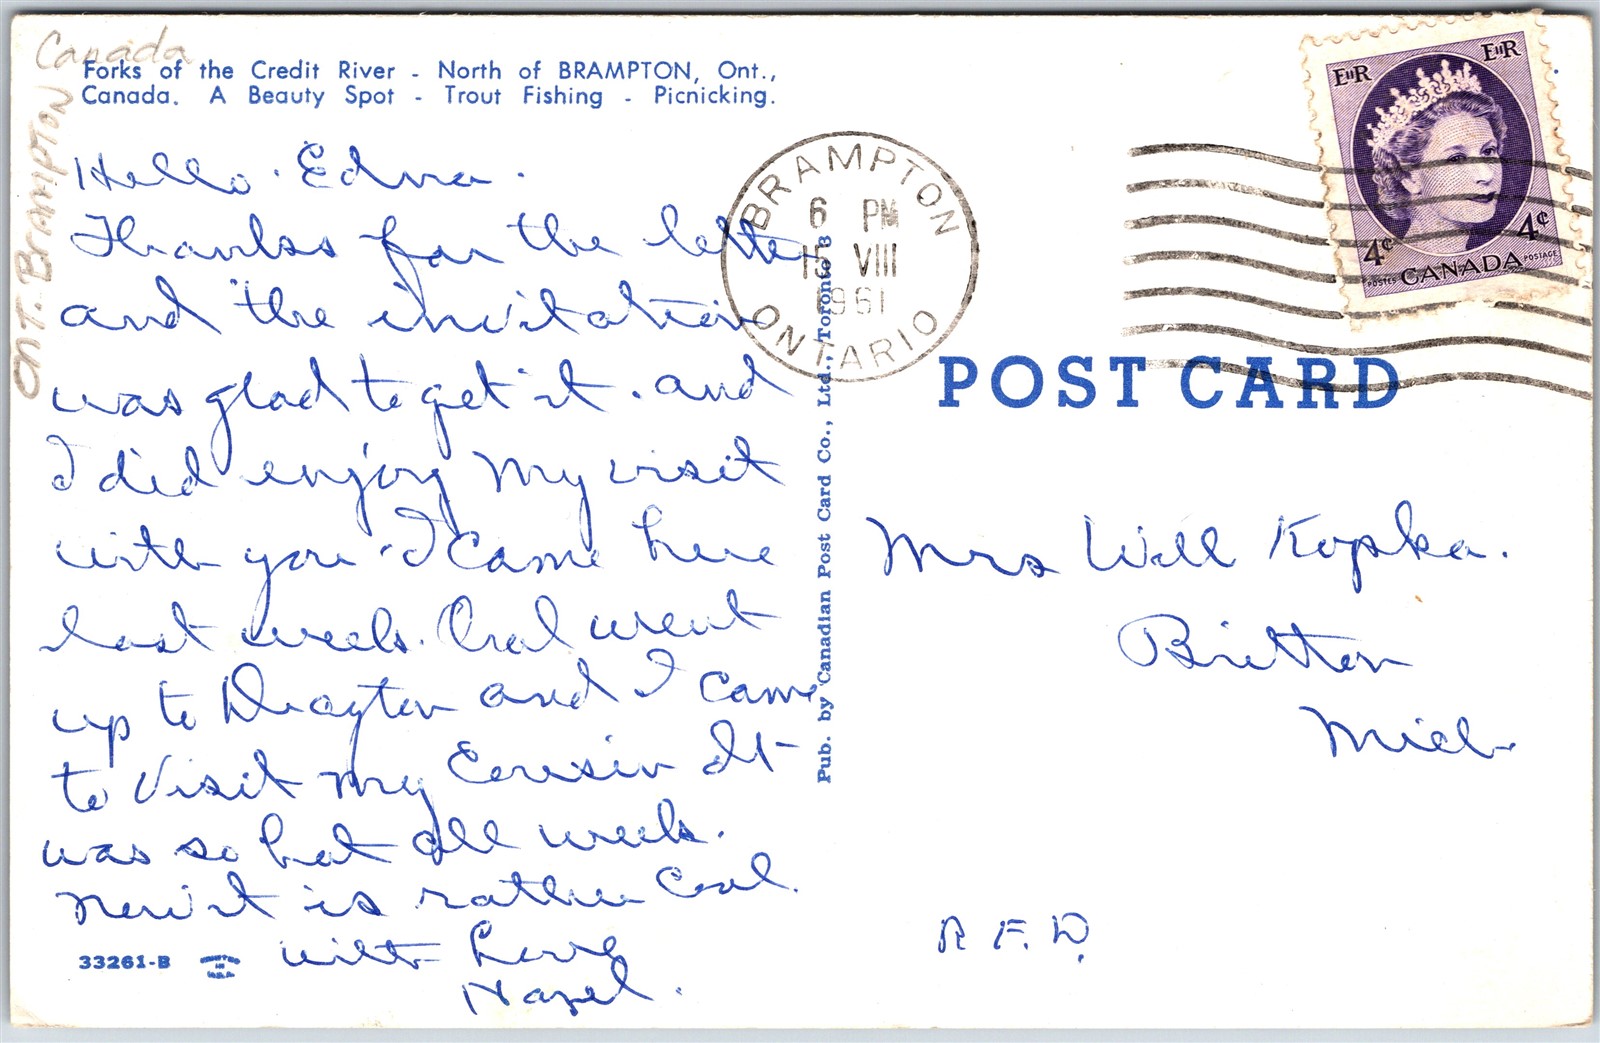 Canada
ONT. BRAMPTON
Forks of the Credit River - North of BRAMPTON, Ont.,
Canada. A Beauty Spot - Trout Fishing - Picnicking.
Hello. Edna.
Thanks for the letter
and the invitation
was glad to get it. and
I did enjoy my visit
with you. I came here
last week. Oral went
up to Drayton and I came
to visit my Cousin It
was so hot all week.
Now it is rather Cool.
with Love
Hazel.
33261-B
Pub. by Canadian Post Card Co., Ltd., Toronto B
BRAMPTON
6 PM
15 VIII
1961
ONTARIO
EIIR
EIIR
4¢
4¢
POSTES CANADA POSTAGE
POST CARD
Mrs Will Kopka.
Britton
Mich
R.F.D.